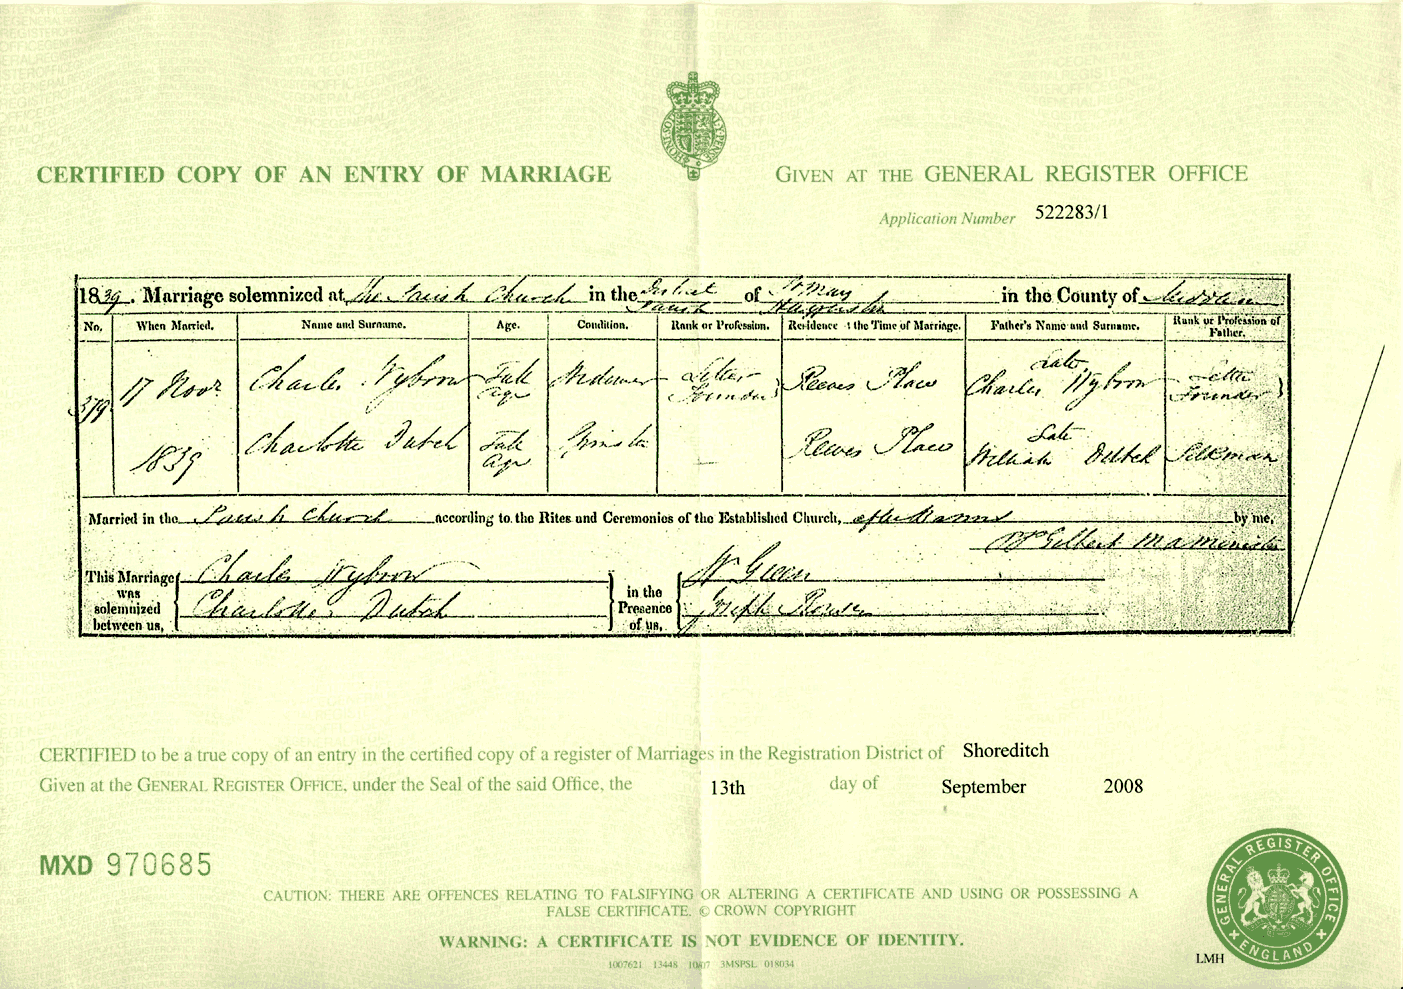 CERTIFIED COPY OF AN ENTRY OF MARRIAGE
GIVEN AT THE GENERAL REGISTER OFFICE
Application Number 522283/1
1839. Marriage solemnized at the Parish Church in the District Parish of St Mary Haggerston in the County of Middlesex
No. When Married. Name and Surname. Age. Condition. Rank or Profession. Residence at the Time of Marriage. Father's Name and Surname. Rank or Profession of Father.
379 17 Novr 1839 Charles Wybrow Full Age Widower Letter Founder Reeves Place Late Charles Wybrow Letter Founder
Charlotte Dutch Full Age Spinster — Reeves Place Late William Dutch Silkman
Married in the Parish Church according to the Rites and Ceremonies of the Established Church, after Banns by me,
Wm Gilbert M A Minister
This Marriage was solemnized between us, Charles Wybrow
Charlotte Dutch
in the Presence of us, W Green
Joseph
CERTIFIED to be a true copy of an entry in the certified copy of a register of Marriages in the Registration District of Shoreditch
Given at the GENERAL REGISTER OFFICE, under the Seal of the said Office, the 13th day of September 2008
MXD 970685
CAUTION: THERE ARE OFFENCES RELATING TO FALSIFYING OR ALTERING A CERTIFICATE AND USING OR POSSESSING A
FALSE CERTIFICATE. © CROWN COPYRIGHT
WARNING: A CERTIFICATE IS NOT EVIDENCE OF IDENTITY.
1007621 13448 10/07 3MSPSL 018034
LMH
GENERAL REGISTER OFFICE
ENGLAND